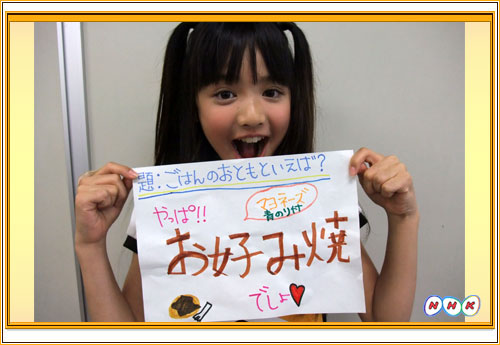 題:ごはんのおともといえば?
やっぱ!!
マヨネーズ
青のり付
お好み焼
でしょ
NHK